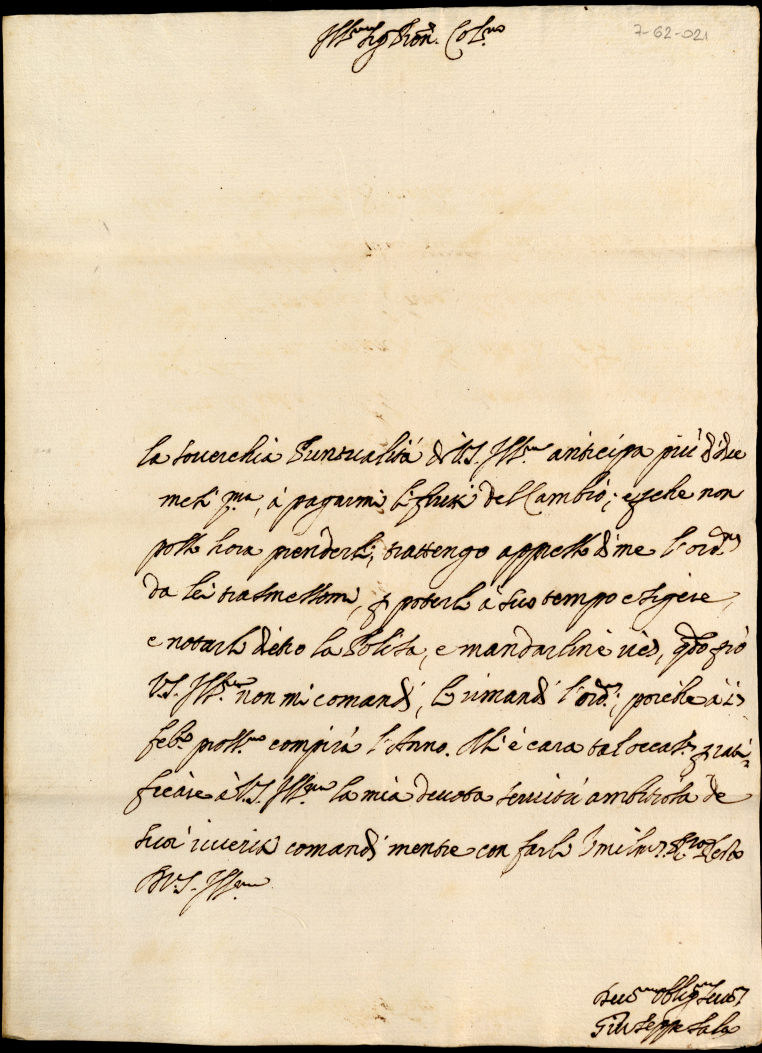 Ill.mo Sig. Pron. Col.mo
7-62-021
la souerchia Puntualità di V.S. Ill.ma anticipa più di due
mesi p.ma, à pagarmi li frutti del Cambio; e perche non
posso hora prenderli, trattengo appresso di me l'ord.e
da lei trasmessomi, p poterli à suo tempo esigere,
e notarli dietro la Polisa, e mandarline
V.S. Ill.ma non mi comandi, le rimandi l'ord.e; poiche a
feb.o pross.mo compirà l'Anno. Mi è cara tal occas.e p rati-
ficare à V.S. Ill.ma la mia deuota seruitù ambitiosa de
suoi riueriti comandi mentre con farli resto
D V.S. Ill.ma
Deu.mo Oblig.mo Seru.re
Giuseppe Sala